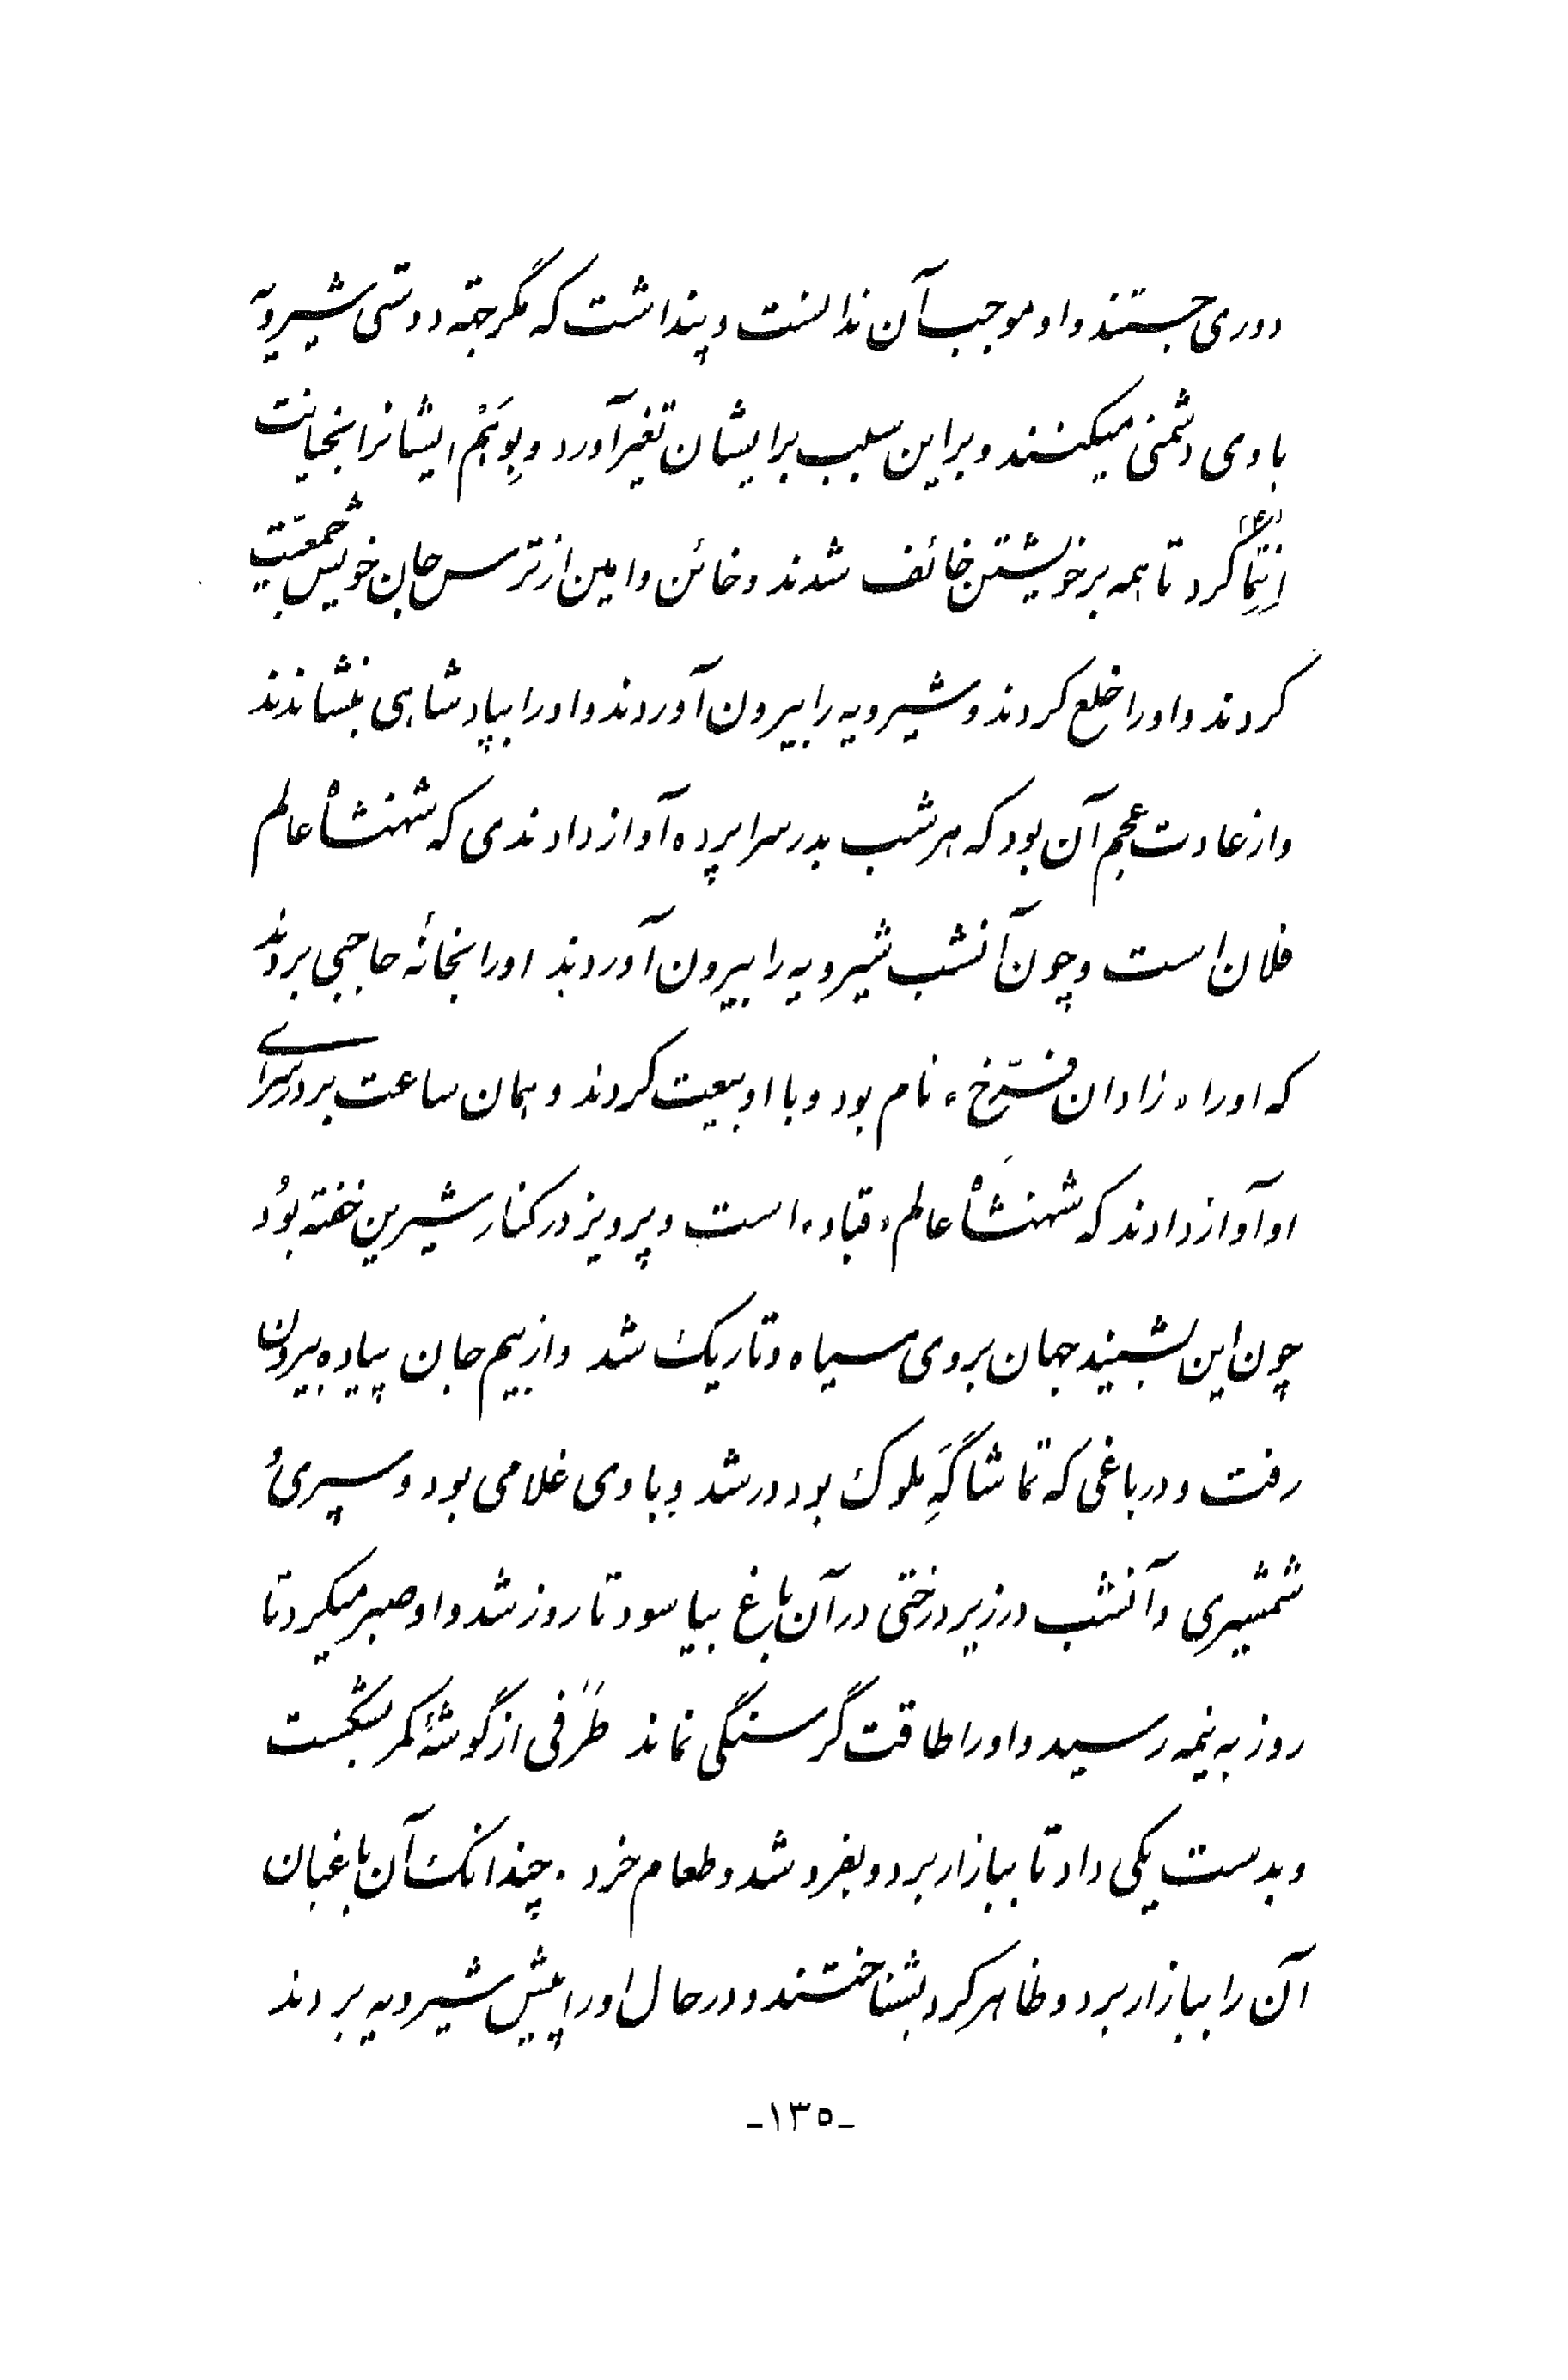 دوری جستند و او موجب آن ندانست و پنداشت که مگر جهة دوستی شیرویه
با وی دشمنی میکنند و بر این سبب بر ایشان تغیر آورد و بِوَهْم ایشانرا بخیانت
اِنتِما کرد تا همه بر خویشتن خائف شدند و خائن و امین از ترس جان خویش جمعیّت
کردند و او را خلع کردند و شیرویه را بیرون آوردند و او را بپادشاهی بنشاندند
و از عادت عجم آن بود که هر شب بدر سراپرده آواز دادندی که شهنشاْه عالم
فلان است و چون آنشب شیرویه را بیرون آوردند او را بخانهٔ حاجبی بردند
که او را «زادان فرّخ» نام بود و با او بیعت کردند و همان ساعت بر در سرای
او آواز دادند که شهنشَاْه عالم «قباد» است و پرویز در کنار شیرین خفته بوُد
چون این بشنید جهان بر وی سیاه و تاریک شد و از بیم جان پیاده بیرون
رفت و در باغی که تماشاگَهِ ملوک بود در شد و با وی غلامی بود و سپریُ
شمشیری و آنشب در زیر درختی در آن باغ بیاسود تا روز شد و او صبر میکرد تا
روز به نیمه رسید و او را طاقت گرسنگی نماند طَرَفی از گوشهٔ کمر بشکست
و بدست یکی داد تا ببازار برد و بفروشد و طعام خرد . چندانک آن باغبان
آن را ببازار برد و ظاهر کرد بشناختند و در حال او را پیش شیرویه بردند
-۱۳۵-